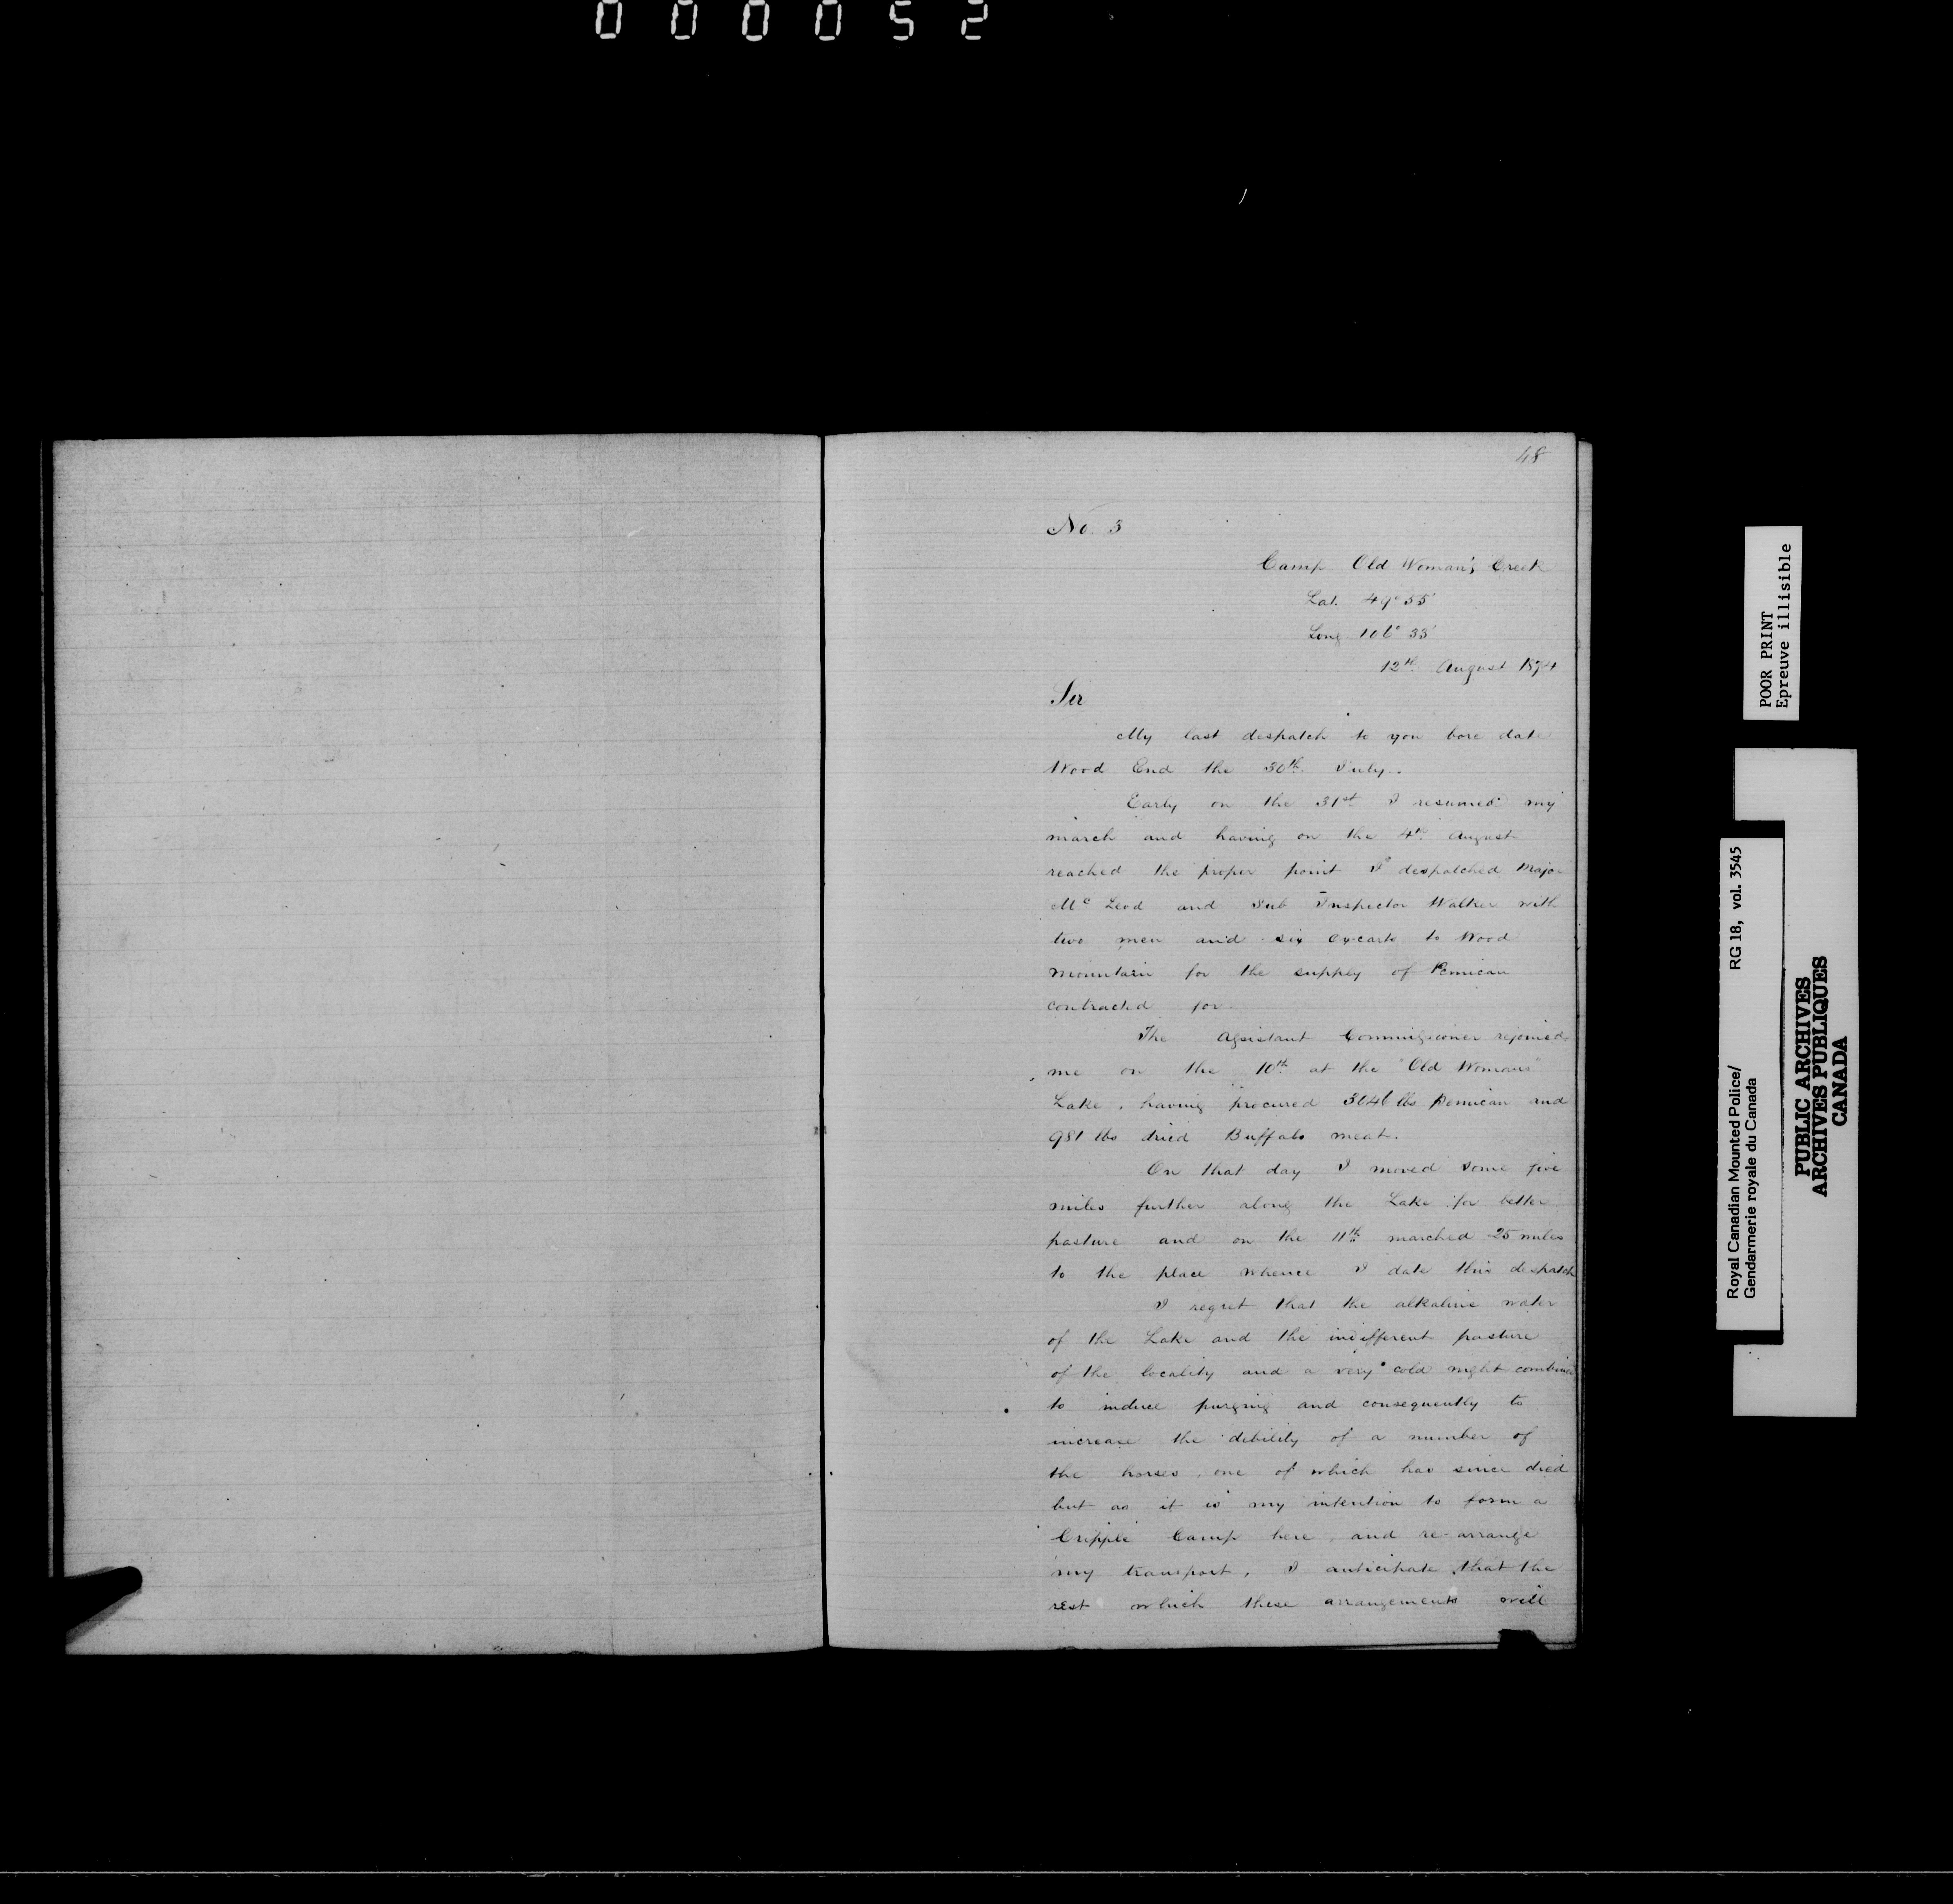 000052
48
No. 3
Camp Old Woman's Creek
Lat. 49° 55'
Long 106° 33'
12th August 1874
Sir
My last despatch to you bore date
Wood End the 30th July.
Early on the 31st I resumed my
march and having on the 4th August
reached the proper point I despatched Major
Mc Leod and Sub Inspector Walker with
two men and six Ox-carts to Wood
Mountain for the supply of Pemican
contracted for.
The Assistant Commissioner rejoined
me on the 10th at the "Old Woman's"
Lake, having procured 3046 lbs Pemican and
981 lbs dried Buffalo meat.
On that day I moved some five
miles further along the Lake for better
pasture and on the 11th marched 25 miles
to the place whence I date this despatch
I regret that the alkaline water
of the Lake and the indifferent pasture
of the locality and a very cold night combined
to induce purging and consequently to
increase the debility of a number of
the horses, one of which has since died
but as it is my intention to form a
Cripple Camp here, and re-arrange
my transport, I anticipate that the
rest which these arrangements will
POOR PRINT
Epreuve illisible
Royal Canadian Mounted Police/ RG 18, vol. 3545
Gendarmerie royale du Canada
PUBLIC ARCHIVES
ARCHIVES PUBLIQUES
CANADA